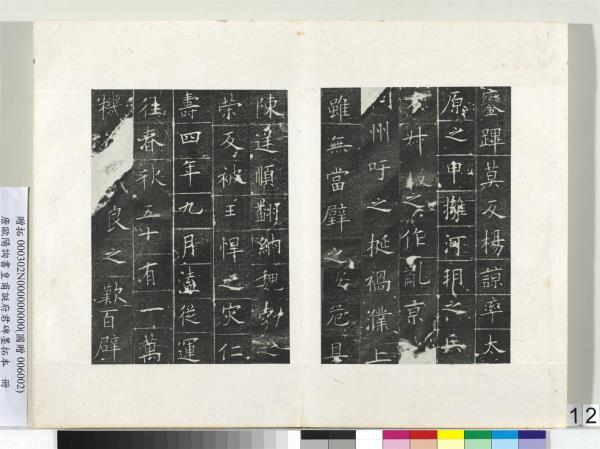 鑾蹕莫反楊諒率太
原之甲擁河朔之兵
方叔段之作亂京
州吁之挻禍濮上
雖無當璧之安危具
陳逆順翻納魏勃之
榮反被王悍之災仁
壽四年九月溘從運
往春秋五十有一萬
機良之歎百辟
贈拓 000302N000000000(國贈 006002)
唐歐陽詢書皇甫誕府君碑墨拓本 冊
12